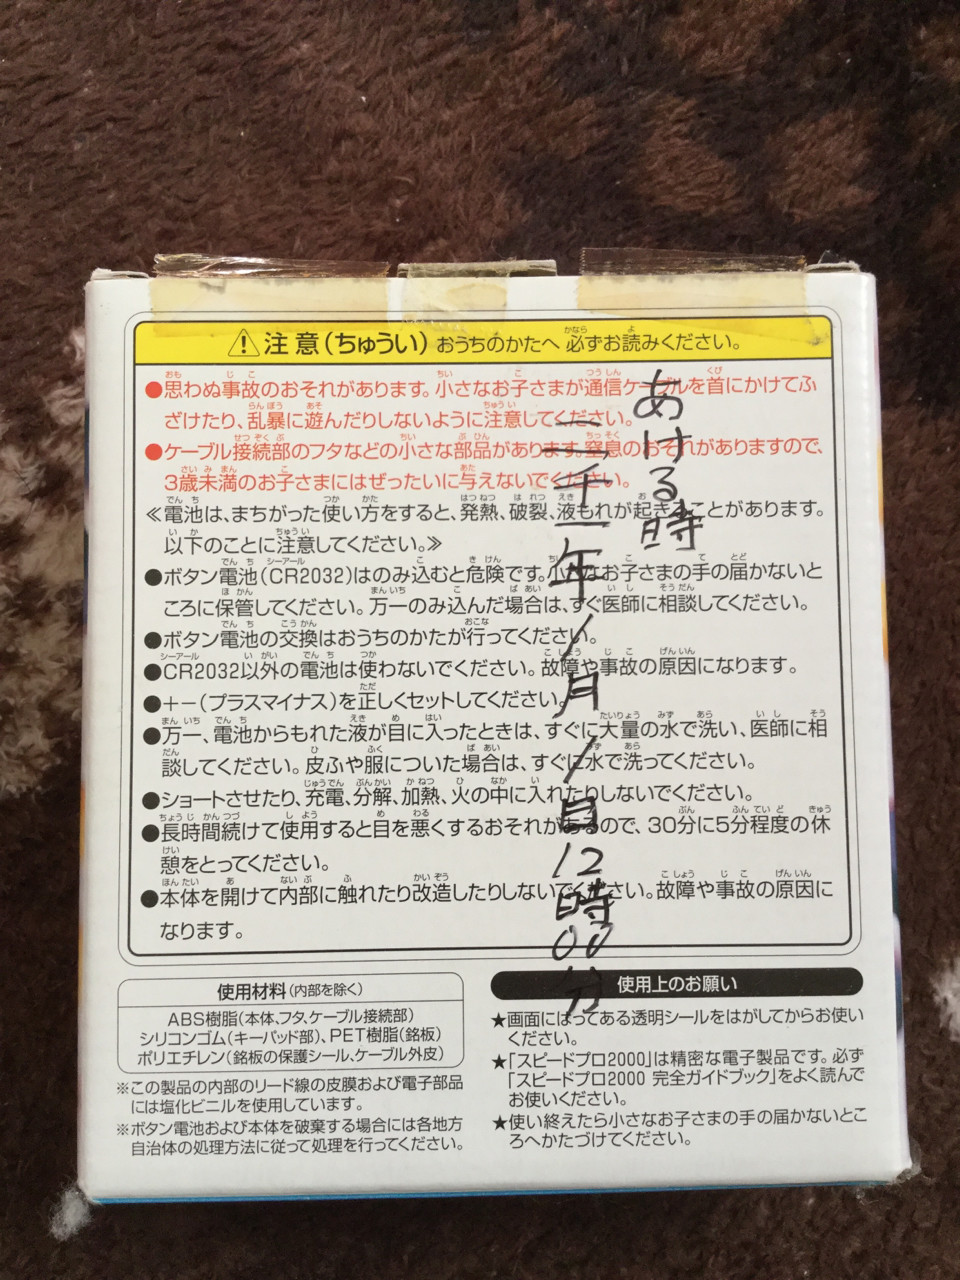 注意(ちゅうい) おうちのかたへ 必ずお読みください。
●思わぬ事故のおそれがあります。小さなお子さまが通信ケーブルを首にかけてふ
ざけたり、乱暴に遊んだりしないように注意してください。
●ケーブル接続部のフタなどの小さな部品があります。窒息のおそれがありますので、
3歳未満のお子さまにはぜったいに与えないでください。
≪電池は、まちがった使い方をすると、発熱、破裂、液もれが起きることがあります。
以下のことに注意してください。≫
●ボタン電池(CR2032)はのみ込むと危険です。小さなお子さまの手の届かないと
ころに保管してください。万一のみ込んだ場合は、すぐ医師に相談してください。
●ボタン電池の交換はおうちのかたが行ってください。
●CR2032以外の電池は使わないでください。故障や事故の原因になります。
●+-(プラスマイナス)を正しくセットしてください。
●万一、電池からもれた液が目に入ったときは、すぐに大量の水で洗い、医師に相
談してください。皮ふや服についた場合は、すぐに水で洗ってください。
●ショートさせたり、充電、分解、加熱、火の中に入れたりしないでください。
●長時間続けて使用すると目を悪くするおそれがあるので、30分に5分程度の休
憩をとってください。
●本体を開けて内部に触れたり改造したりしないでください。故障や事故の原因に
なります。
あける時
二千一年1月1日12時00分
使用材料(内部を除く)
ABS樹脂(本体、フタ、ケーブル接続部)
シリコンゴム(キーパッド部)、PET樹脂(銘板)
ポリエチレン(銘板の保護シール、ケーブル外皮)
※この製品の内部のリード線の皮膜および電子部品
には塩化ビニルを使用しています。
※ボタン電池および本体を破棄する場合には各地方
自治体の処理方法に従って処理を行ってください。
使用上のお願い
★画面にはってある透明シールをはがしてからお使い
ください。
★「スピードプロ2000」は精密な電子製品です。必ず
「スピードプロ2000 完全ガイドブック」をよく読んで
お使いください。
★使い終えたら小さなお子さまの手の届かないとこ
ろへかたづけてください。